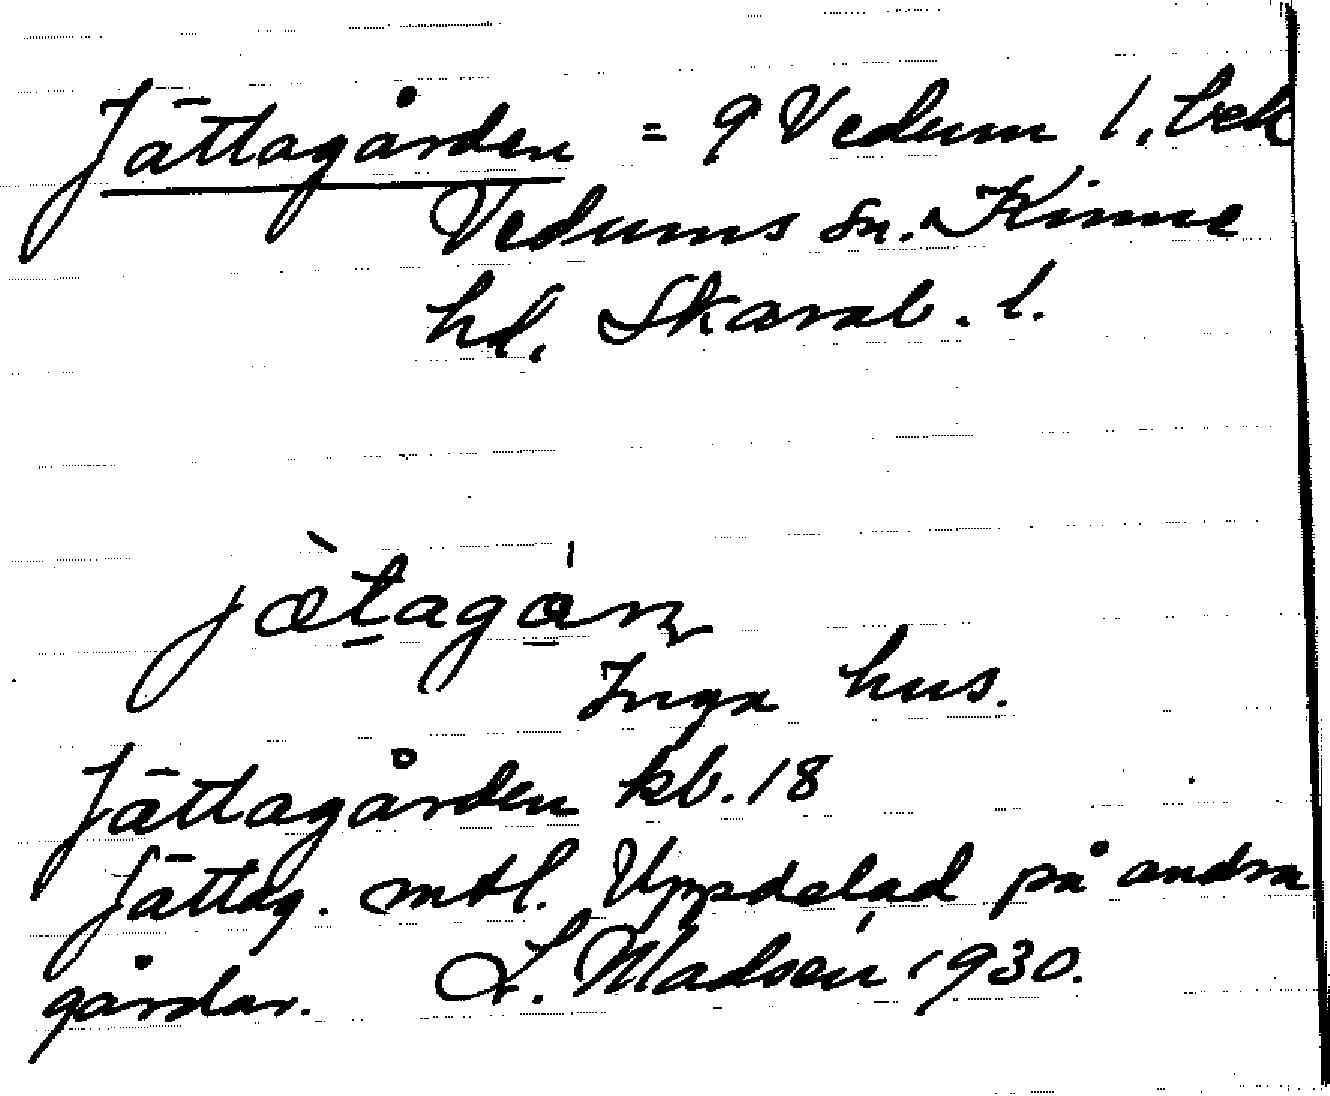 Jättagården = 9 Vedum 1, bek
Vedums sn. Kinne
hd, Skarab. l.
jæ̀tagán
Inga hus.
Jättagården kb. 18
Jättag. mtl. Uppdelad på andra
gårdar. L. Madsén 1930.